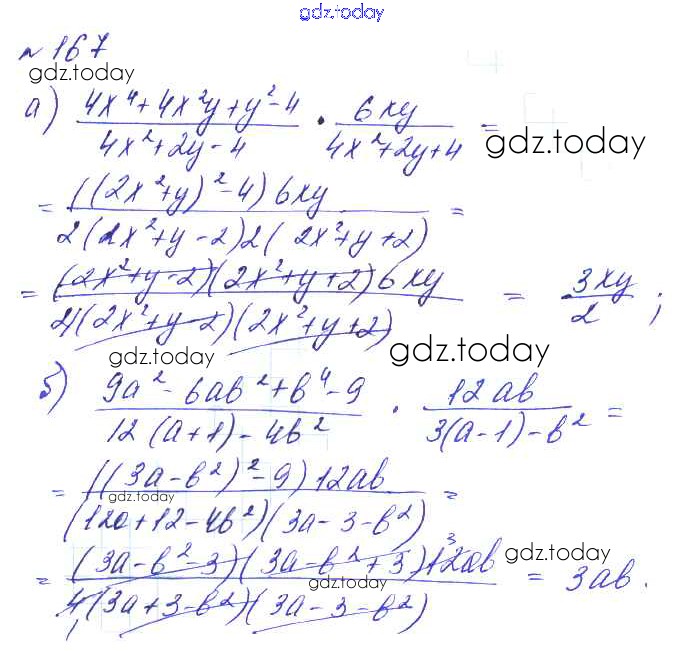 gdz.today
№ 167
gdz.today
а) (4x⁴+4x²y+y²-4)/(4x²+2y-4) · 6xy/(4x²+2y+4) =
gdz.today
= ((2x²+y)²-4) 6xy / 2(2x²+y-2)2(2x²+y+2) =
= (2x²+y-2)(2x²+y+2) 6xy / 4(2x²+y-2)(2x²+y+2) = 3xy/2 ;
gdz.today gdz.today
б) (9a²-6ab²+b⁴-9)/(12(a+1)-4b²) · 12ab/(3(a-1)-b²) =
= ((3a-b²)²-9) 12ab / (12a+12-4b²)(3a-3-b²) =
gdz.today
= (3a-b²-3)(3a-b²+3) 12ab 3 / 4(3a+3-b²)(3a-3-b²) 1 = 3ab.
gdz.today
gdz.today